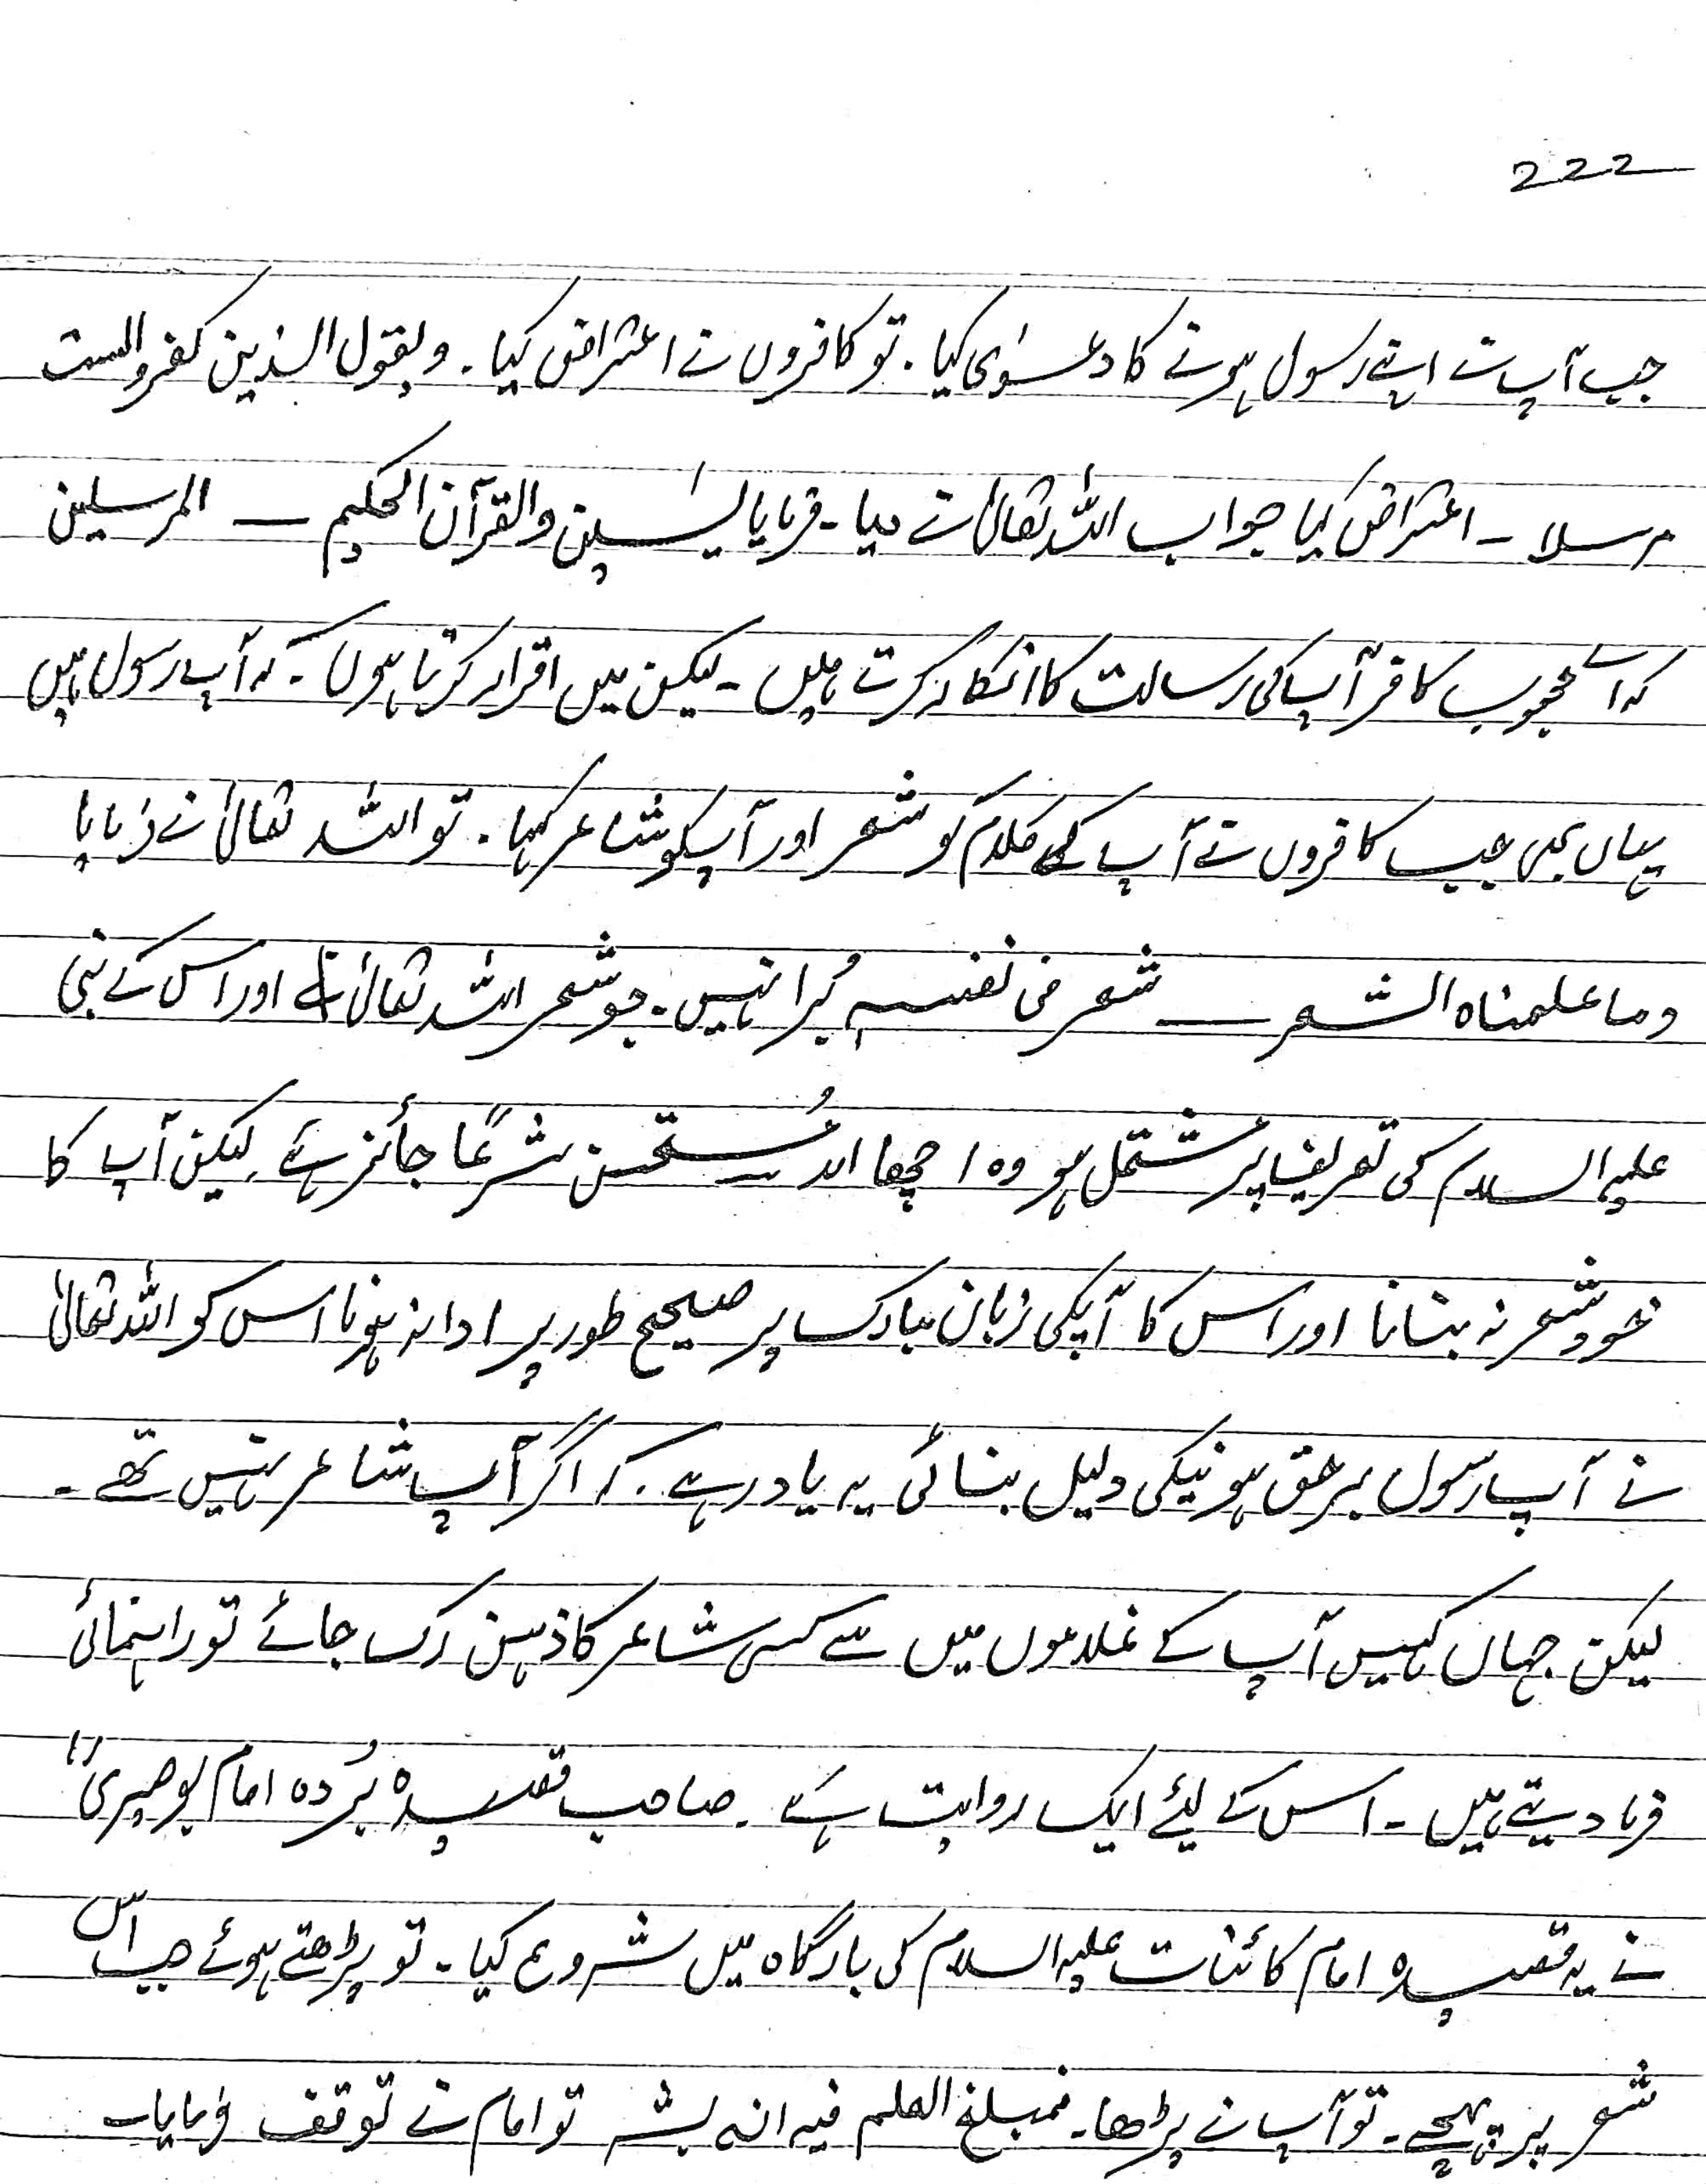 222
جب آپ نے اپنے رسول ہونے کا دعوٰی کیا۔ تو کافروں نے اعتراض کیا۔ ویقول الذین کفرو الست
مرسلا ۔ اعتراض کیا جواب اللہ تعالیٰ نے دیا۔ فرمایا یٰسین والقرآن الحکیم — المرسلین
کہ اے محبوب کافر آپ کی رسالت کا انکار کرتے ہیں ۔ لیکن میں اقرار کرتا ہوں ۔ کہ آپ رسول ہیں
یہاں بھی جب کافروں نے آپ کے کلام کو شعر اور آپکو شاعر کہا۔ تو اللہ تعالیٰ نے فرمایا
وما علمناہ الشعر — شعر فی نفسہ بُرا نہیں۔ جو شعر اللہ تعالیٰ اور اس کے نبی
علیہ السلام کی تعریف پر مشتمل ہو وہ اچھا اور مُستحسن شرعًا جائز ہے۔ لیکن آپ کا
خود شعر نہ بنانا اور اس کا آپکی زبان مبارک پر صحیح طور پر ادا نہ ہونا اس کو اللہ تعالیٰ
نے آپ رسول برحق ہونیکی دلیل بنائی یہ یاد رہے ۔ کہ اگر آپ شاعر نہیں تھے ۔
لیکن جہاں کہیں آپ کے غلاموں میں سے کسی شاعر کا ذہن رک جائے تو راہنمائی
فرما دیتے ہیں ۔ اس کے لیئے ایک روایت ہے ۔ صاحب قصیدہ بُردہ امام بوصیری
نے یہ قصیدہ امام کائنات علیہ السلام کی بارگاہ میں شروع کیا ۔ تو پڑھتے ہوئے جب اس
شعر پر پہنچے ۔ تو آپ نے پڑھا ۔ فمبلغ العلم فیہ انہ بشر تو امام نے توقف فرمایا